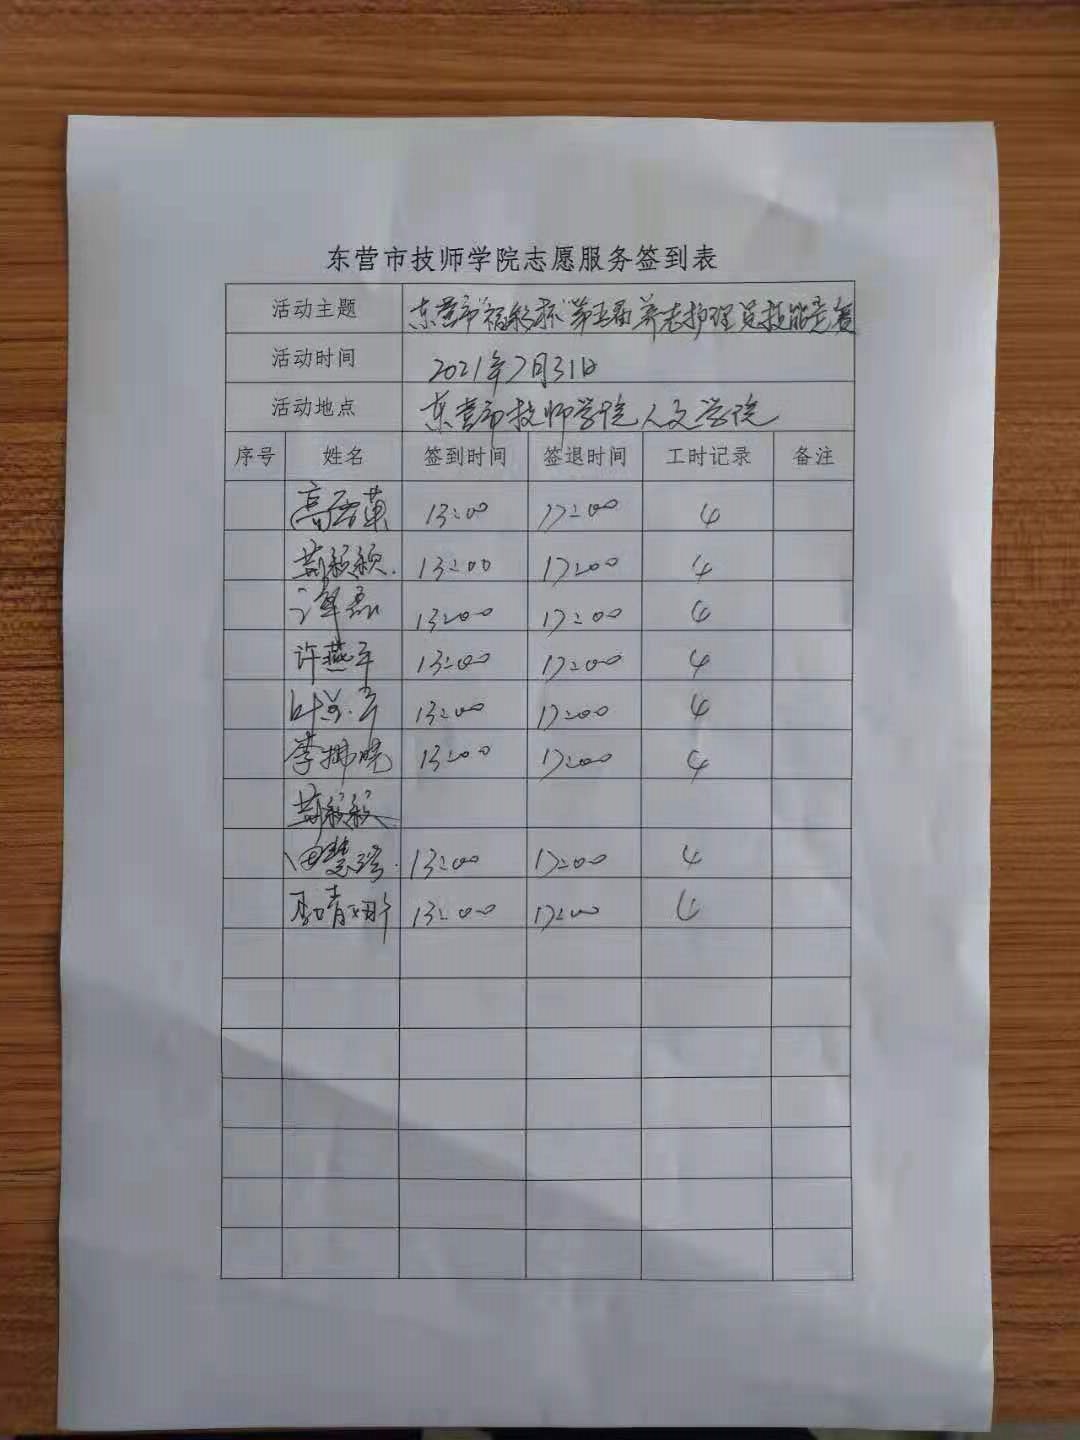 东营市技师学院志愿服务签到表
活动主题 东营市“福彩杯”第五届养老护理员技能竞赛
活动时间 2021年7月31日
活动地点 东营市技师学院人文学院
序号 姓名 签到时间 签退时间 工时记录 备注
13:00 17:00 4
13:00 17:00 4
谭磊 13:00 17:00 4
许燕平 13:00 17:00 4
13:00 17:00 4
李拂晓 13:00 17:00 4
田慧 13:00 17:00 4
13:00 17:00 4